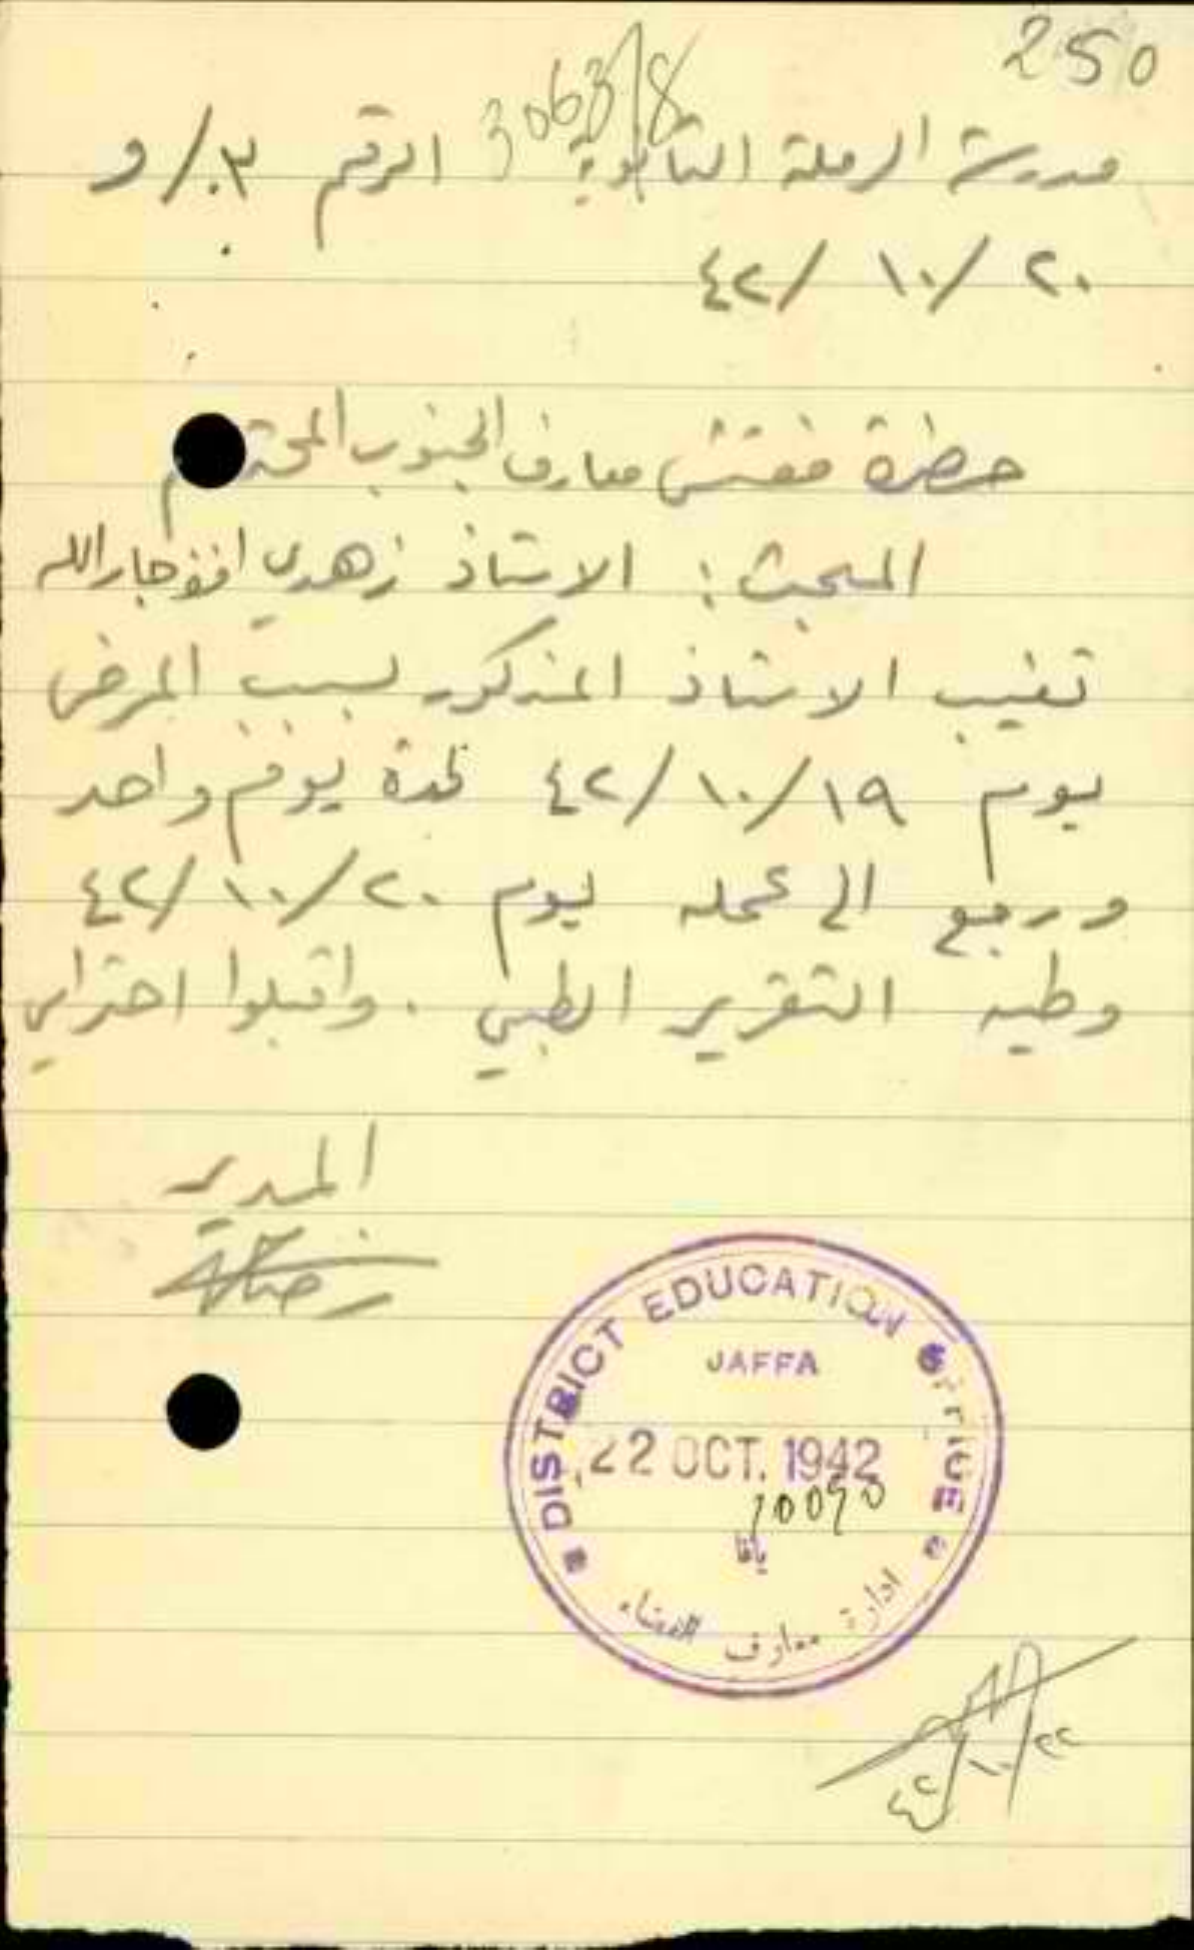 250
3063/8
مدرسة الرملة الثانوية الرقم ٣٠/و
٤٢/١٠/٢٠
حضرة مفتش معارف الجنوب المحترم
المبحث : الاستاذ زهدي افندي جارالله
تغيب الاستاذ المذكور بسبب المرض
يوم ٤٢/١٠/١٩ لمدة يوم واحد
ورجع الى عمله يوم ٤٢/١٠/٢٠
وطيه التقرير الطبي . واقبلوا احترامي
المدير
DISTRICT EDUCATION OFFICE
JAFFA
22 OCT. 1942
يافا
ادارة معارف القضاء
٤٢/١٠/٢٢